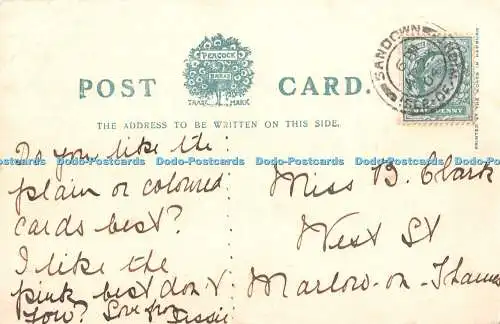 POST CARD.
PEACOCK
BRAND
TRADE MARK
THE ADDRESS TO BE WRITTEN ON THIS SIDE.
SANDOWN
HALFPENNY
Dodo-Postcards Dodo-Postcards Dodo-Postcards Dodo-Postcards Dodo-Postcards
Do you like the
plain or coloured
cards best?
I like the
pink best don't
you? Love from
Jessie
Miss B. Clark
West St
Marlow-on-Thames